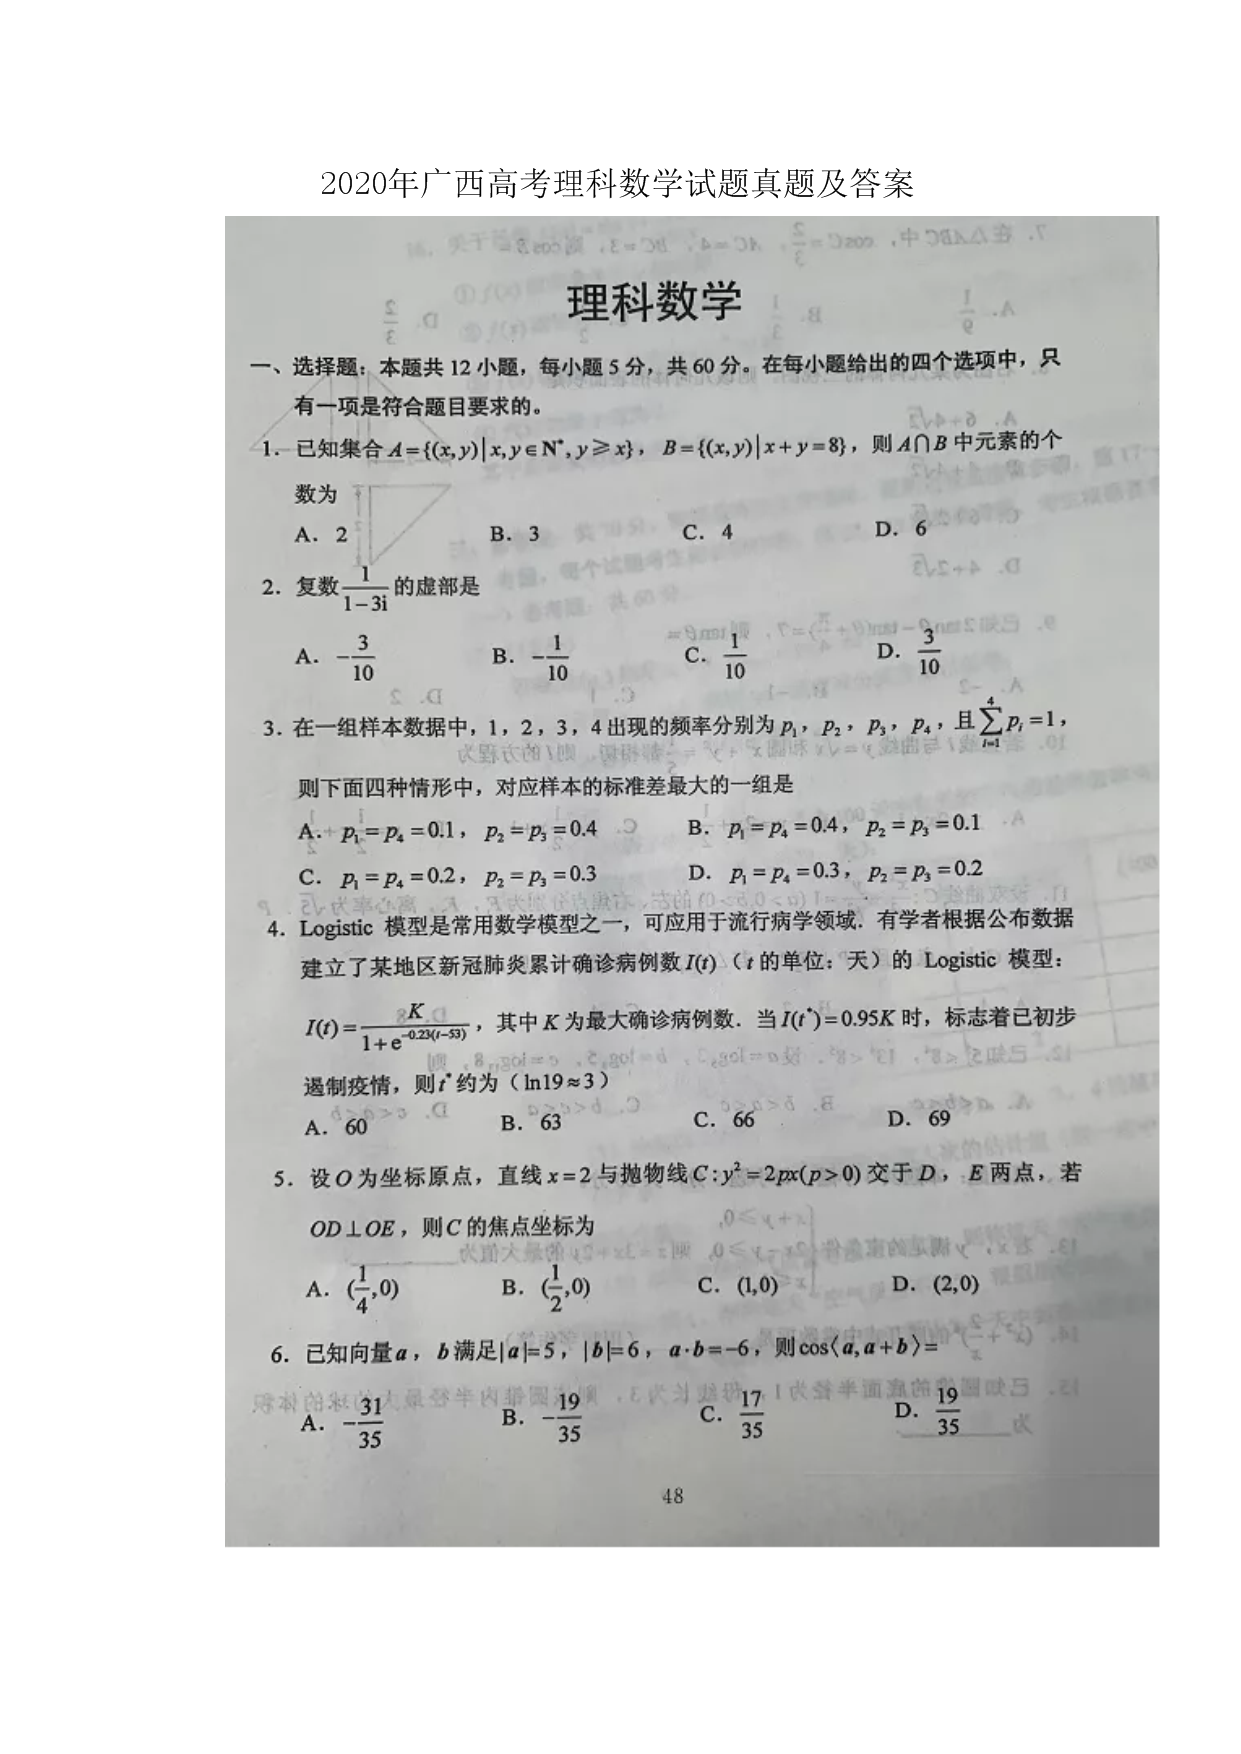 2020年广西高考理科数学试题真题及答案
理科数学
一、选择题：本题共 12 小题，每小题 5 分，共 60 分。在每小题给出的四个选项中，只
有一项是符合题目要求的。
1．已知集合 A={(x,y)|x,y∈N*,y≥x}，B={(x,y)|x+y=8}，则 A∩B 中元素的个
数为
A．2 B．3 C．4 D．6
2．复数 1/(1−3i) 的虚部是
A．−3/10 B．−1/10 C．1/10 D．3/10
3．在一组样本数据中，1，2，3，4 出现的频率分别为 p₁，p₂，p₃，p₄，且 ∑_{i=1}^{4} pᵢ=1，
则下面四种情形中，对应样本的标准差最大的一组是
A．p₁=p₄=0.1，p₂=p₃=0.4 B．p₁=p₄=0.4，p₂=p₃=0.1
C．p₁=p₄=0.2，p₂=p₃=0.3 D．p₁=p₄=0.3，p₂=p₃=0.2
4．Logistic 模型是常用数学模型之一，可应用于流行病学领域．有学者根据公布数据
建立了某地区新冠肺炎累计确诊病例数 I(t)（t 的单位：天）的 Logistic 模型：
I(t)=K/(1+e^{−0.23(t−53)})，其中 K 为最大确诊病例数．当 I(t*)=0.95K 时，标志着已初步
遏制疫情，则 t* 约为（ln19≈3）
A．60 B．63 C．66 D．69
5．设 O 为坐标原点，直线 x=2 与抛物线 C:y²=2px(p>0) 交于 D，E 两点，若
OD⊥OE，则 C 的焦点坐标为
A．(1/4,0) B．(1/2,0) C．(1,0) D．(2,0)
6．已知向量 a，b 满足|a|=5，|b|=6，a·b=−6，则 cos⟨a,a+b⟩=
A．−31/35 B．−19/35 C．17/35 D．19/35
48